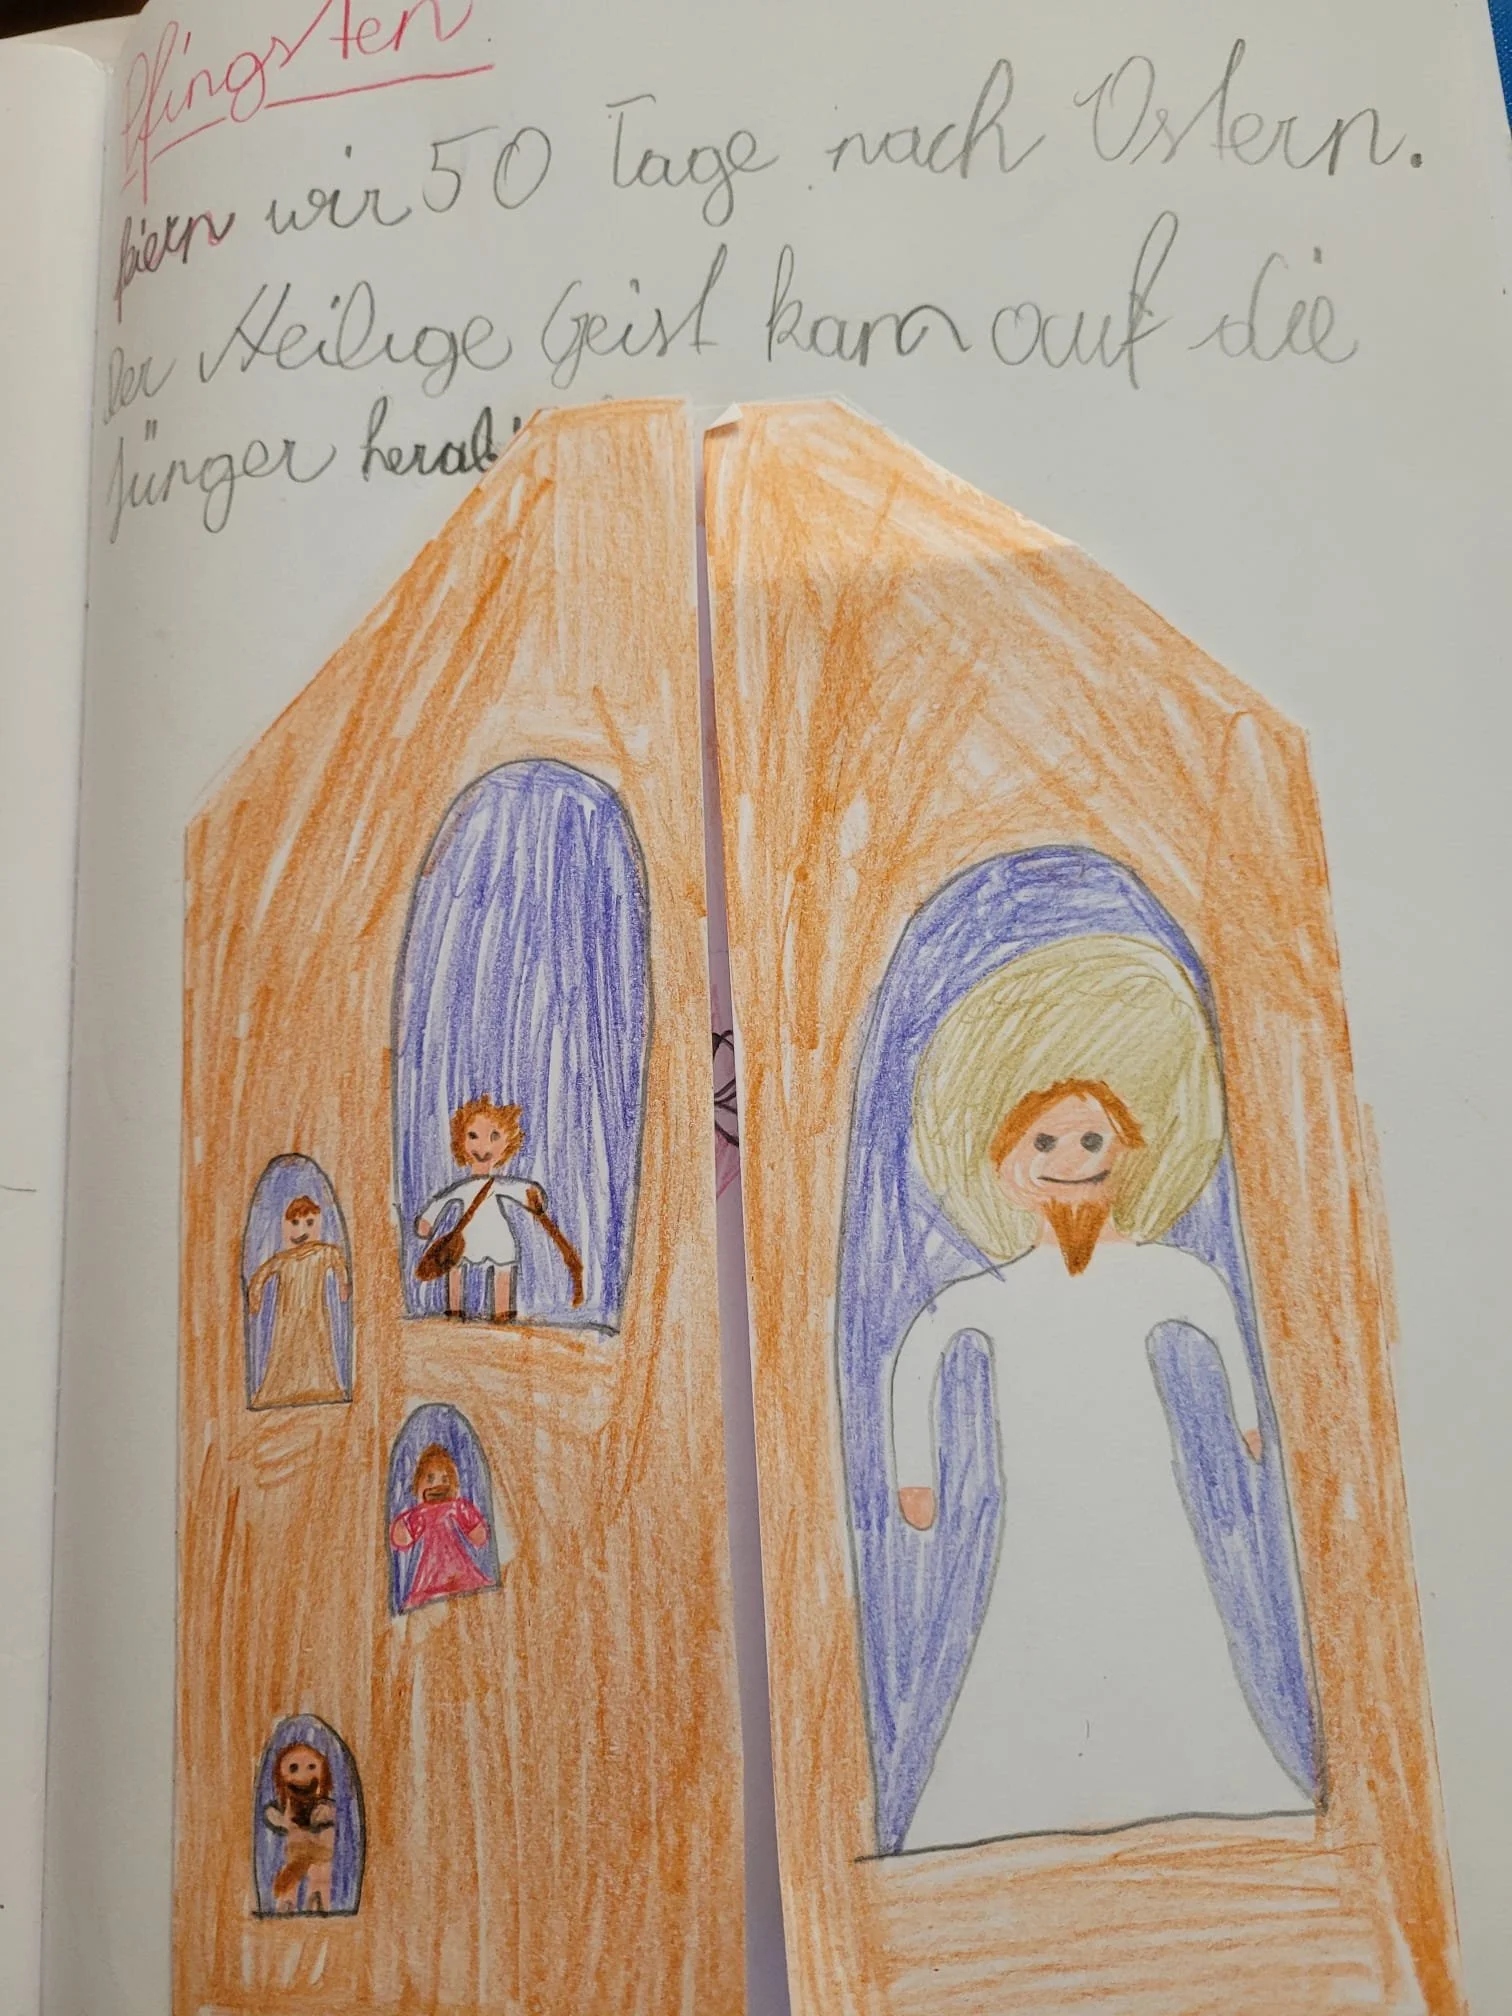 Pfingsten
feiern wir 50 Tage nach Ostern.
Der Heilige Geist kam auf die
Jünger herab.